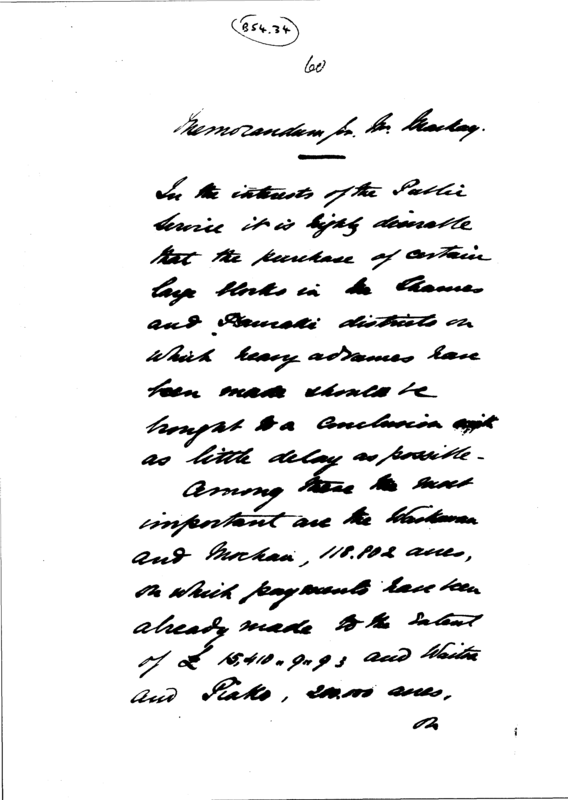 B54.34
60
Memorandum for Mr. Mackay.
In the interests of the Public
Service it is highly desirable
that the purchase of certain
large blocks in the Thames
and Hauraki districts on
which heavy advances have
been made should be
brought to a conclusion with
as little delay as possible -
Among these the most
important are the
and Moehau, 118.802 acres,
on which payments have been
already made to the extent
of £ 15,410 " 9 " 9 ; and Waitoa
and Piako, 200.000 acres,
on